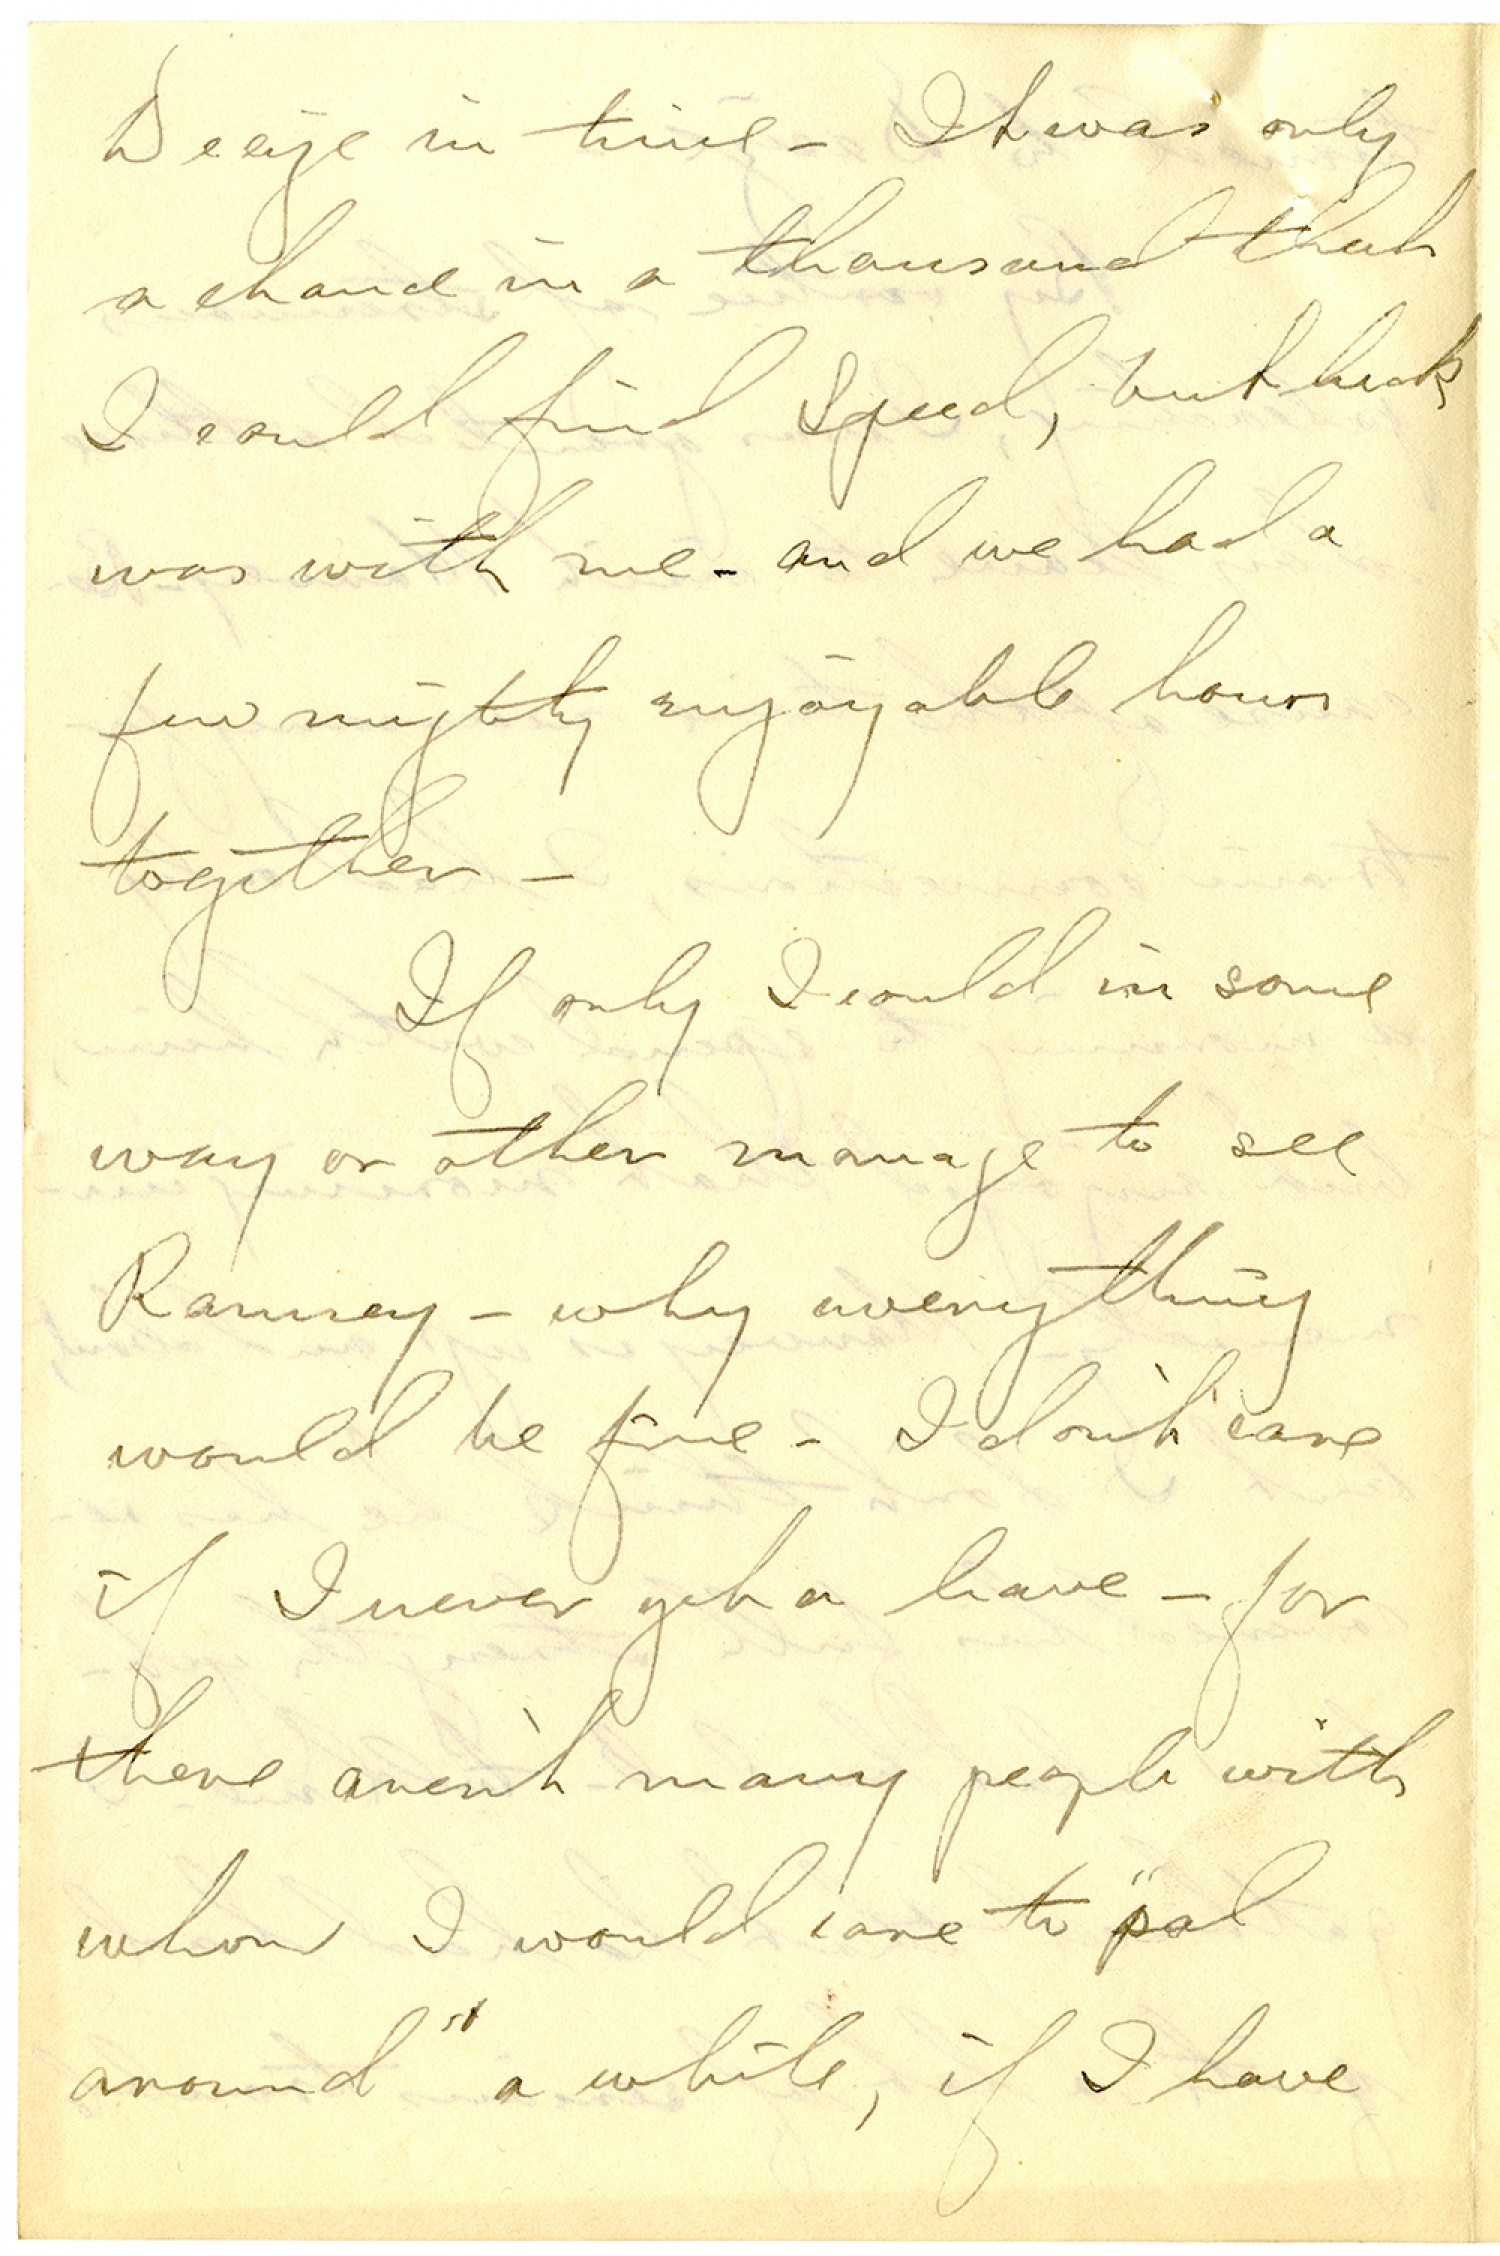 Decize in time – It was only
a chance in a thousand that
I could find Speed, but luck
was with me – and we had a
few mighty enjoyable hours
together –
If only I could in some
way or other manage to see
Ramsey – why everything
would be fine – I don't care
if I never get a leave – for
there aren't many people with
whom I would care to "pal
around" a while, if I have